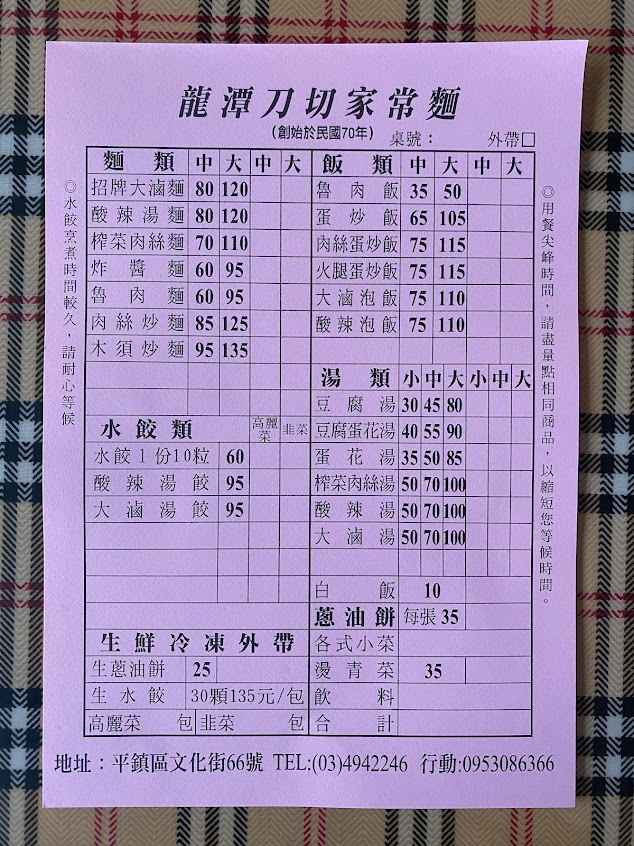 龍潭刀切家常麵
(創始於民國70年)
桌號： 外帶□
◎水餃烹煮時間較久，請耐心等候
麵類 中 大 中 大
招牌大滷麵 80 120
酸辣湯麵 80 120
榨菜肉絲麵 70 110
炸醬麵 60 95
魯肉麵 60 95
肉絲炒麵 85 125
木須炒麵 95 135
水餃類 高麗菜 韭菜
水餃1份10粒 60
酸辣湯餃 95
大滷湯餃 95
生鮮冷凍外帶
生蔥油餅 25
生水餃 30顆135元/包
高麗菜 包 韭菜 包
飯類 中 大 中 大
魯肉飯 35 50
蛋炒飯 65 105
肉絲蛋炒飯 75 115
火腿蛋炒飯 75 115
大滷泡飯 75 110
酸辣泡飯 75 110
湯類 小 中 大 小 中 大
豆腐湯 30 45 80
豆腐蛋花湯 40 55 90
蛋花湯 35 50 85
榨菜肉絲湯 50 70 100
酸辣湯 50 70 100
大滷湯 50 70 100
白飯 10
蔥油餅 每張 35
各式小菜
燙青菜 35
飲料
合計
◎用餐尖峰時間，請盡量點相同商品，以縮短您等候時間。
地址：平鎮區文化街66號 TEL:(03)4942246 行動:0953086366